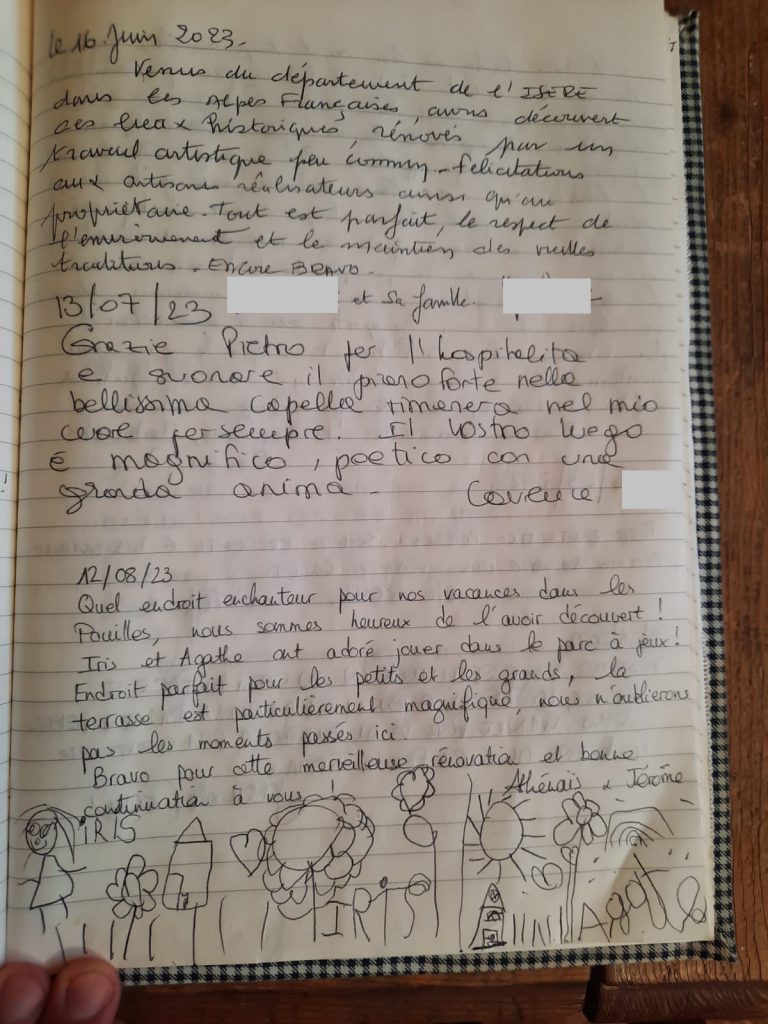 le 16 Juin 2023.
Venus du département de l'ISERE
dans les Alpes Françaises, avons découvert
ces lieux historiques rénovés par un
travail artistique peu commun. Félicitations
aux artisans réalisateurs ainsi qu'au
propriétaire. Tout est parfait, le respect de
l'environnement et le maintien des vieilles
traditions. Encore BRAVO.
et sa famille.
13/07/23
Grazie Pietro per l'hospitalita
e suonare il piano forte nella
bellissima capella rimanera nel mio
cuore per sempre. Il vostro luego
é magnifico, poetico con una
granda anima.
12/08/23
Quel endroit enchanteur pour nos vacances dans les
Pouilles, nous sommes heureux de l'avoir découvert !
Iris et Agathe ont adoré jouer dans le parc à jeux !
Endroit parfait pour les petits et les grands, la
terrasse est particulièrement magnifique, nous n'oublierons
pas les moments passés ici.
Bravo pour cette merveilleuse rénovation et bonne
continuation à vous !
Athénaïs & Jérôme
IRIS
IRIS
Agate